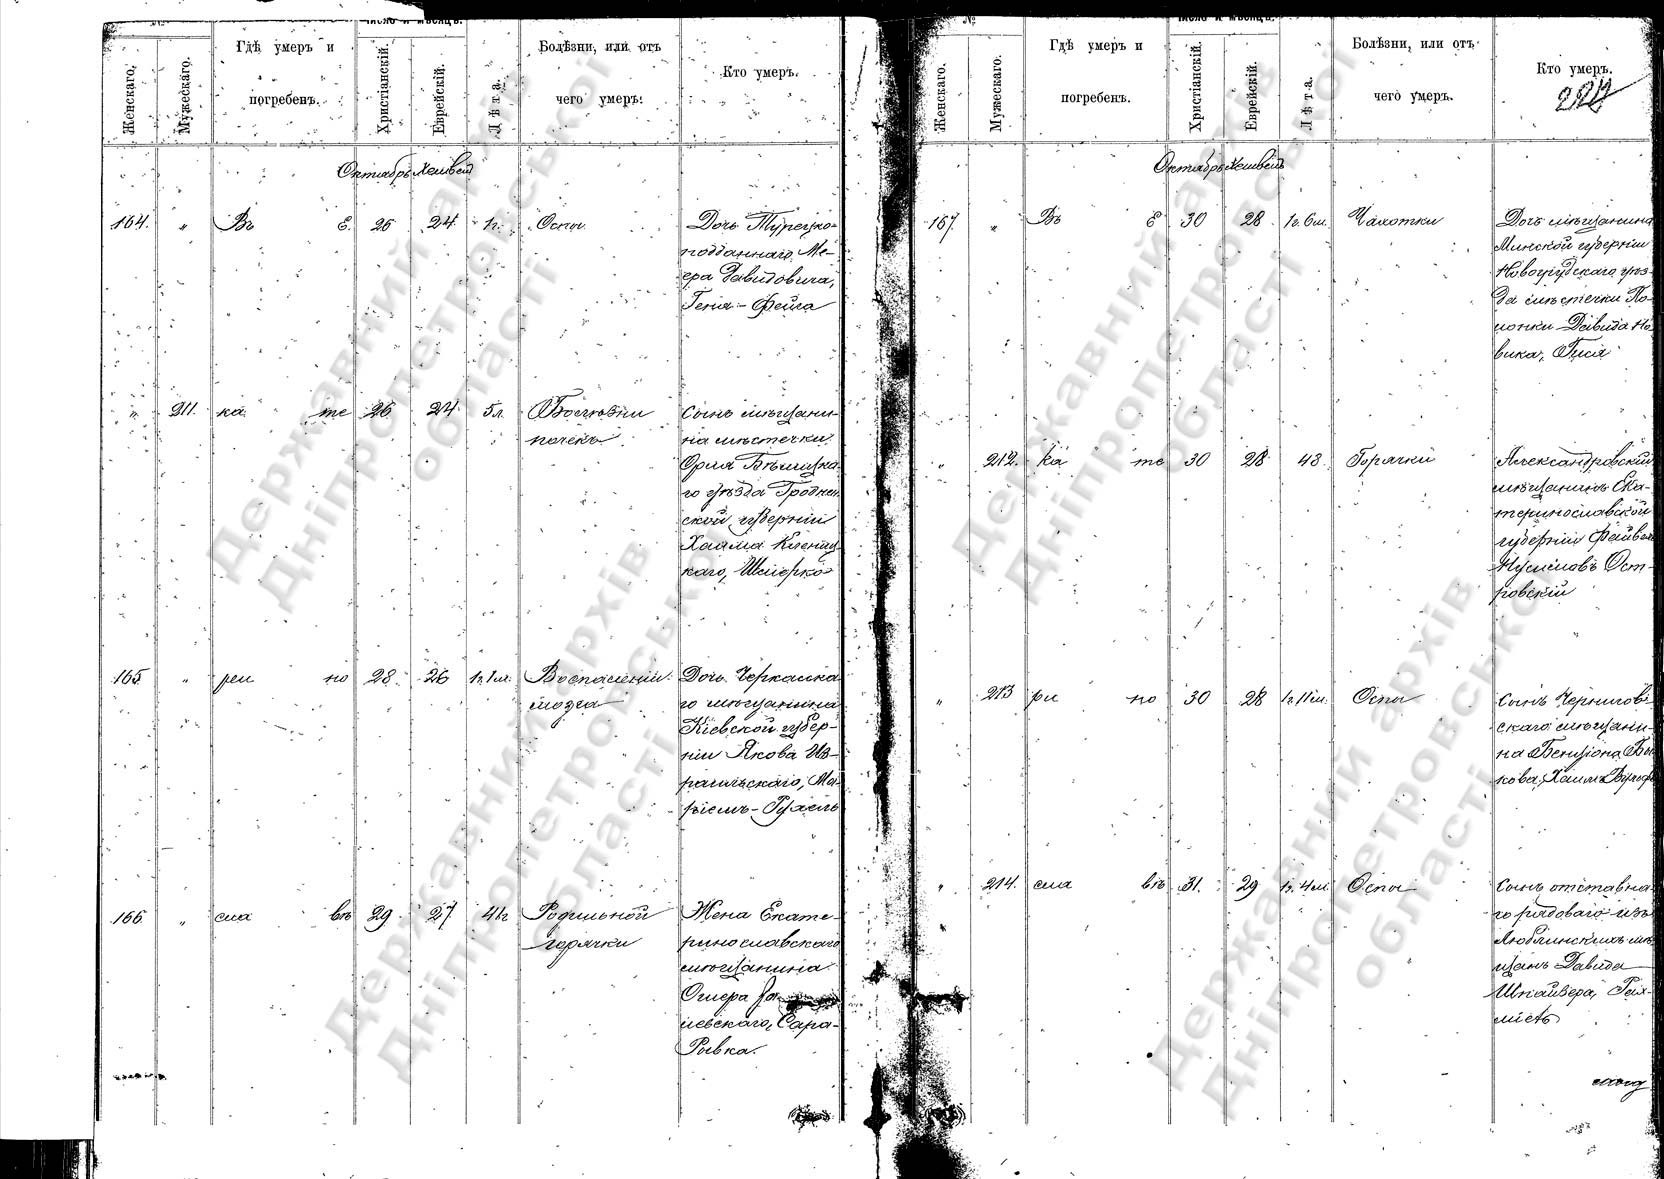 Число и мѣсяцъ.
Женскаго.
Мужескаго.
Гдѣ умеръ и
погребенъ.
Христіанскій.
Еврейскій.
Лѣта.
Болѣзни, или отъ
чего умеръ.
Кто умеръ.
Октябрь Хешвенъ
164. " Въ Е. 26 24 1г. Оспы. Дочь Турецко-
подданнаго Ме-
ера Давидовича,
Геня-Фейга
" 211. ка те 26 24 5л. Болѣзни Сынъ мѣщани-
почекъ на мѣстечки
Орля Бѣльцка-
го уѣзда Гроднен
ской губерніи
Хаима
каго, Шмерко
165. " ри но 28. 26 1г.1м. Воспаленія Дочь Черкаска
мозга го мѣщанина
Кіевской губер-
ніи Якова Из-
раильскаго, Ма-
ріемъ-Рухель
166. " сла въ 29. 27 41г. Родильной Жена Екате-
горячки ринославскаго
мѣщанина
Ошера
левскаго, Сара-
Рывка.
№
Число и мѣсяцъ.
Женскаго.
Мужескаго.
Гдѣ умеръ и
погребенъ.
Христіанскій.
Еврейскій.
Лѣта.
Болѣзни, или отъ
чего умеръ.
Кто умеръ.
Октябрь Хешвенъ
167. " Въ Е 30 28 1г.6м. Чахотки Дочь мѣщанина
Минской губерніи
Новогрудскаго уѣз-
да мѣстечки По-
лонки Давида Но
вика, Гися
" 212. ка те 30 28 48. Горячки Александровскій
мѣщанинъ Ека-
теринославской
губерніи Файвель
Нусимовъ Ост-
ровскій
" 213 ри но 30 28 1г.11м. Оспы Сынъ Чернигов-
скаго мѣщани-
на Бенціона Бы
кова, Хаимъ Вульфъ
" 214. сла въ 31. 29 1г.4м. Оспы Сынъ отставна-
го рядоваго изъ
Люблинскихъ мѣ
щанъ Давида
Шпайзера, Рах-
міель
Державний архів
Дніпропетровської
області